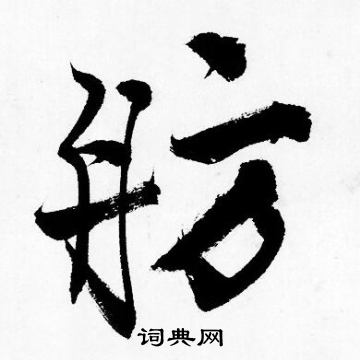 舫
词典网